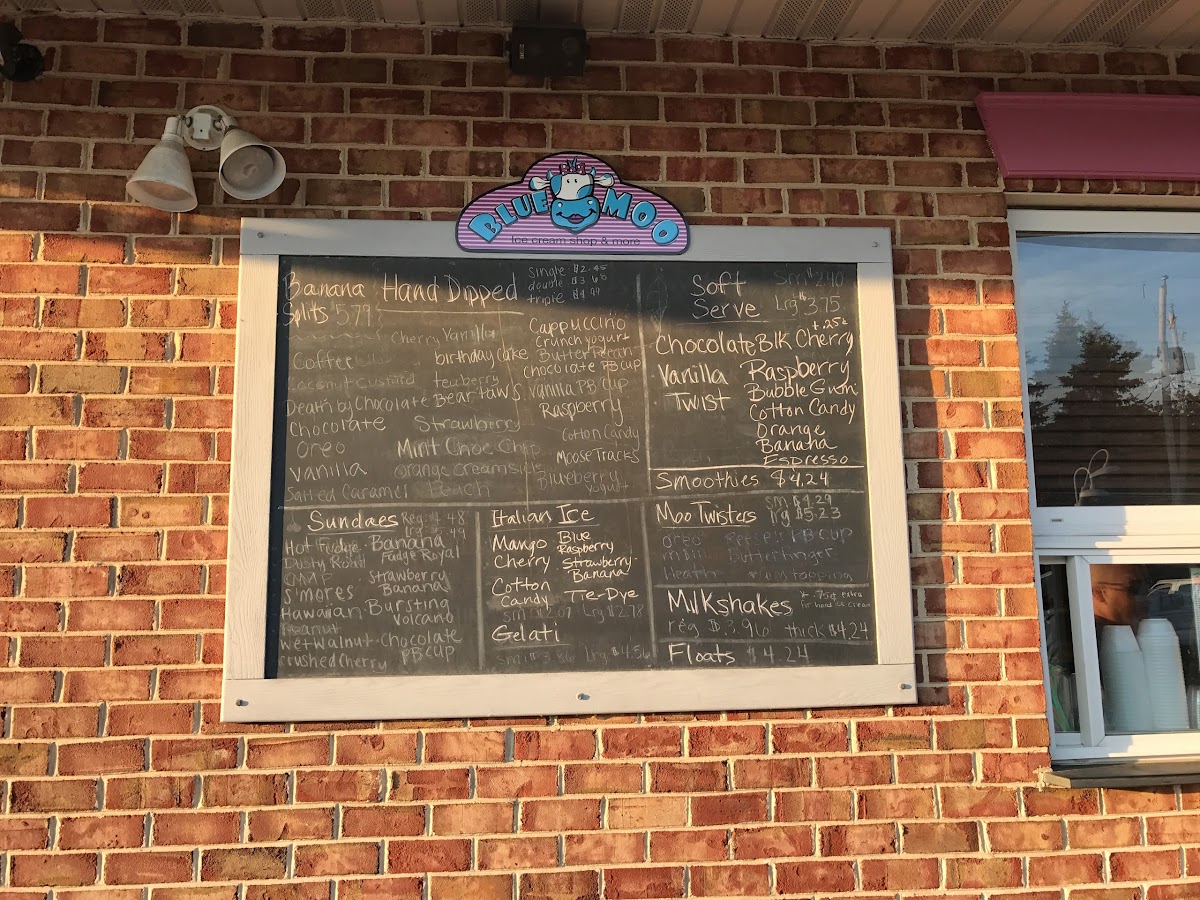 BLUE MOO
Ice Cream Shop & more
Banana
Splits $5.79
Hand Dipped
single $2.45
double $3.65
triple
Cherry Vanilla
Coffee
birthday cake
Coconut Custard
teaberry
Death by Chocolate
Bear Paws
Chocolate
Strawberry
Oreo
Mint Choc Chip
vanilla
orange creamsicle
Salted Caramel
Peach
Cappuccino
Crunch yogurt
Butter Pecan
chocolate PB cup
vanilla PB cup
Raspberry
Cotton Candy
Moose Tracks
Blueberry
yogurt
Soft
Serve
Sm $2.40
Lrg $3.75
+ .25¢
Chocolate
Vanilla
Twist
Blk Cherry
Raspberry
Bubble Gum
Cotton Candy
Orange
Banana
Espresso
Smoothies $4.24
Sundaes
Hot Fudge
Banana
Dusty Road
Fudge Royal
CMP
Strawberry
S'mores
Banana
Hawaiian
Bursting
Volcano
Peanut
wetwalnut
Chocolate
PB cup
crushed Cherry
Italian Ice
Mango
Blue
Raspberry
Cherry
Strawberry
Banana
Cotton
Candy
Tie-Dye
Lrg $2.78
Gelati
Lrg $4.56
Moo Twisters
sm $4.29
lrg $5.23
oreo
Reese's PB CUP
m&m
Butterfinger
Heath
Milkshakes
* .75¢ extra
for hand ice cream
reg $3.96 thick $4.24
Floats $4.24